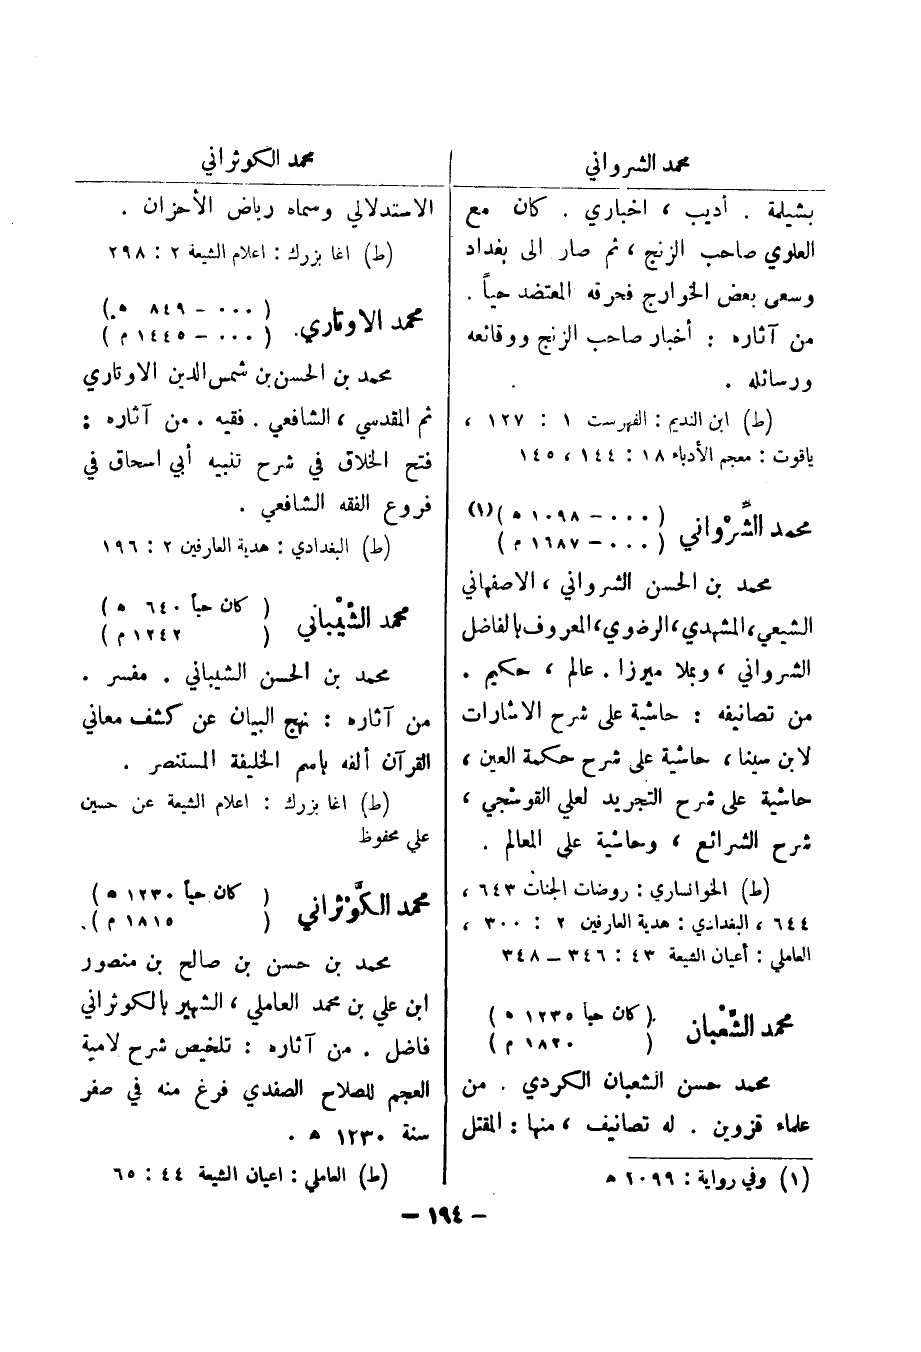 محمد الشرواني
بشيلمة . أديب ، اخباري . كان مع
العلوي صاحب الزنج ، ثم صار الى بغداد
وسعى بعض الخوارج فحرقه المعتضد حياً .
من آثاره : أخبار صاحب الزنج ووقائعه
ورسائله .
(ط) ابن النديم : الفهرست ١ : ١٢٧ ،
ياقوت : معجم الأدباء ١٨ : ١٤٤ ، ١٤٥
محمد الشِّرْواني (٠٠٠ – ١٠٩٨ ه)(١)
(٠٠٠ – ١٦٨٧ م)
محمد بن الحسن الشرواني ، الاصفهاني
الشيعي، المشهدي، الرضوي، المعروف بالفاضل
الشرواني ، وبملا ميرزا . عالم ، حكيم .
من تصانيفه : حاشية على شرح الاشارات
لابن سينا ، حاشية على شرح حكمة العين ،
حاشية على شرح التجريد لعلي القوشجي ،
شرح الشرائع ، وحاشية على المعالم .
(ط) الخوانساري : روضات الجنات ٦٤٣ ،
٦٤٤ ، البغدادي : هدية العارفين ٢ : ٣٠٠ ،
العاملي : أعيان الشيعة ٤٣ : ٣٤٦ – ٣٤٨
محمد الشَّعْبان (كان حياً ١٢٣٥ ه)
( ١٨٢٠ م)
محمد حسن الشعبان الكردي . من
علماء قزوين . له تصانيف ، منها : المقتل
(١) وفي رواية : ١٠٩٩ ه
محمد الكوثراني
الاستدلالي وسماه رياض الأحزان .
(ط) اغا بزرك : اعلام الشيعة ٢ : ٢٩٨
محمد الاوتاري. (٠٠٠ – ٨٤٩ ه)
(٠٠٠ – ١٤٤٥ م)
محمد بن الحسن بن شمس الدين الاوتاري
ثم المقدسي ، الشافعي . فقيه . من آثاره :
فتح الخلاق في شرح تنبيه أبي اسحاق في
فروع الفقه الشافعي .
(ط) البغدادي : هدية العارفين ٢ : ١٩٦
محمد الشَّيْباني (كان حياً ٦٤٠ ه)
( ١٢٤٢ م)
محمد بن الحسن الشيباني . مفسر .
من آثاره : نهج البيان عن كشف معاني
القرآن ألفه باسم الخليفة المستنصر .
(ط) اغا بزرك : اعلام الشيعة عن حسين
علي محفوظ
محمد الكَوْثراني (كان حياً ١٢٣٠ ه)
( ١٨١٥ م).
محمد بن حسن بن صالح بن منصور
ابن علي بن محمد العاملي ، الشهير بالكوثراني
فاضل . من آثاره : تلخيص شرح لامية
العجم للصلاح الصفدي فرغ منه في صفر
سنة ١٢٣٠ ه .
(ط) العاملي : اعيان الشيعة ٤٤ : ٦٥
– ١٩٤ –